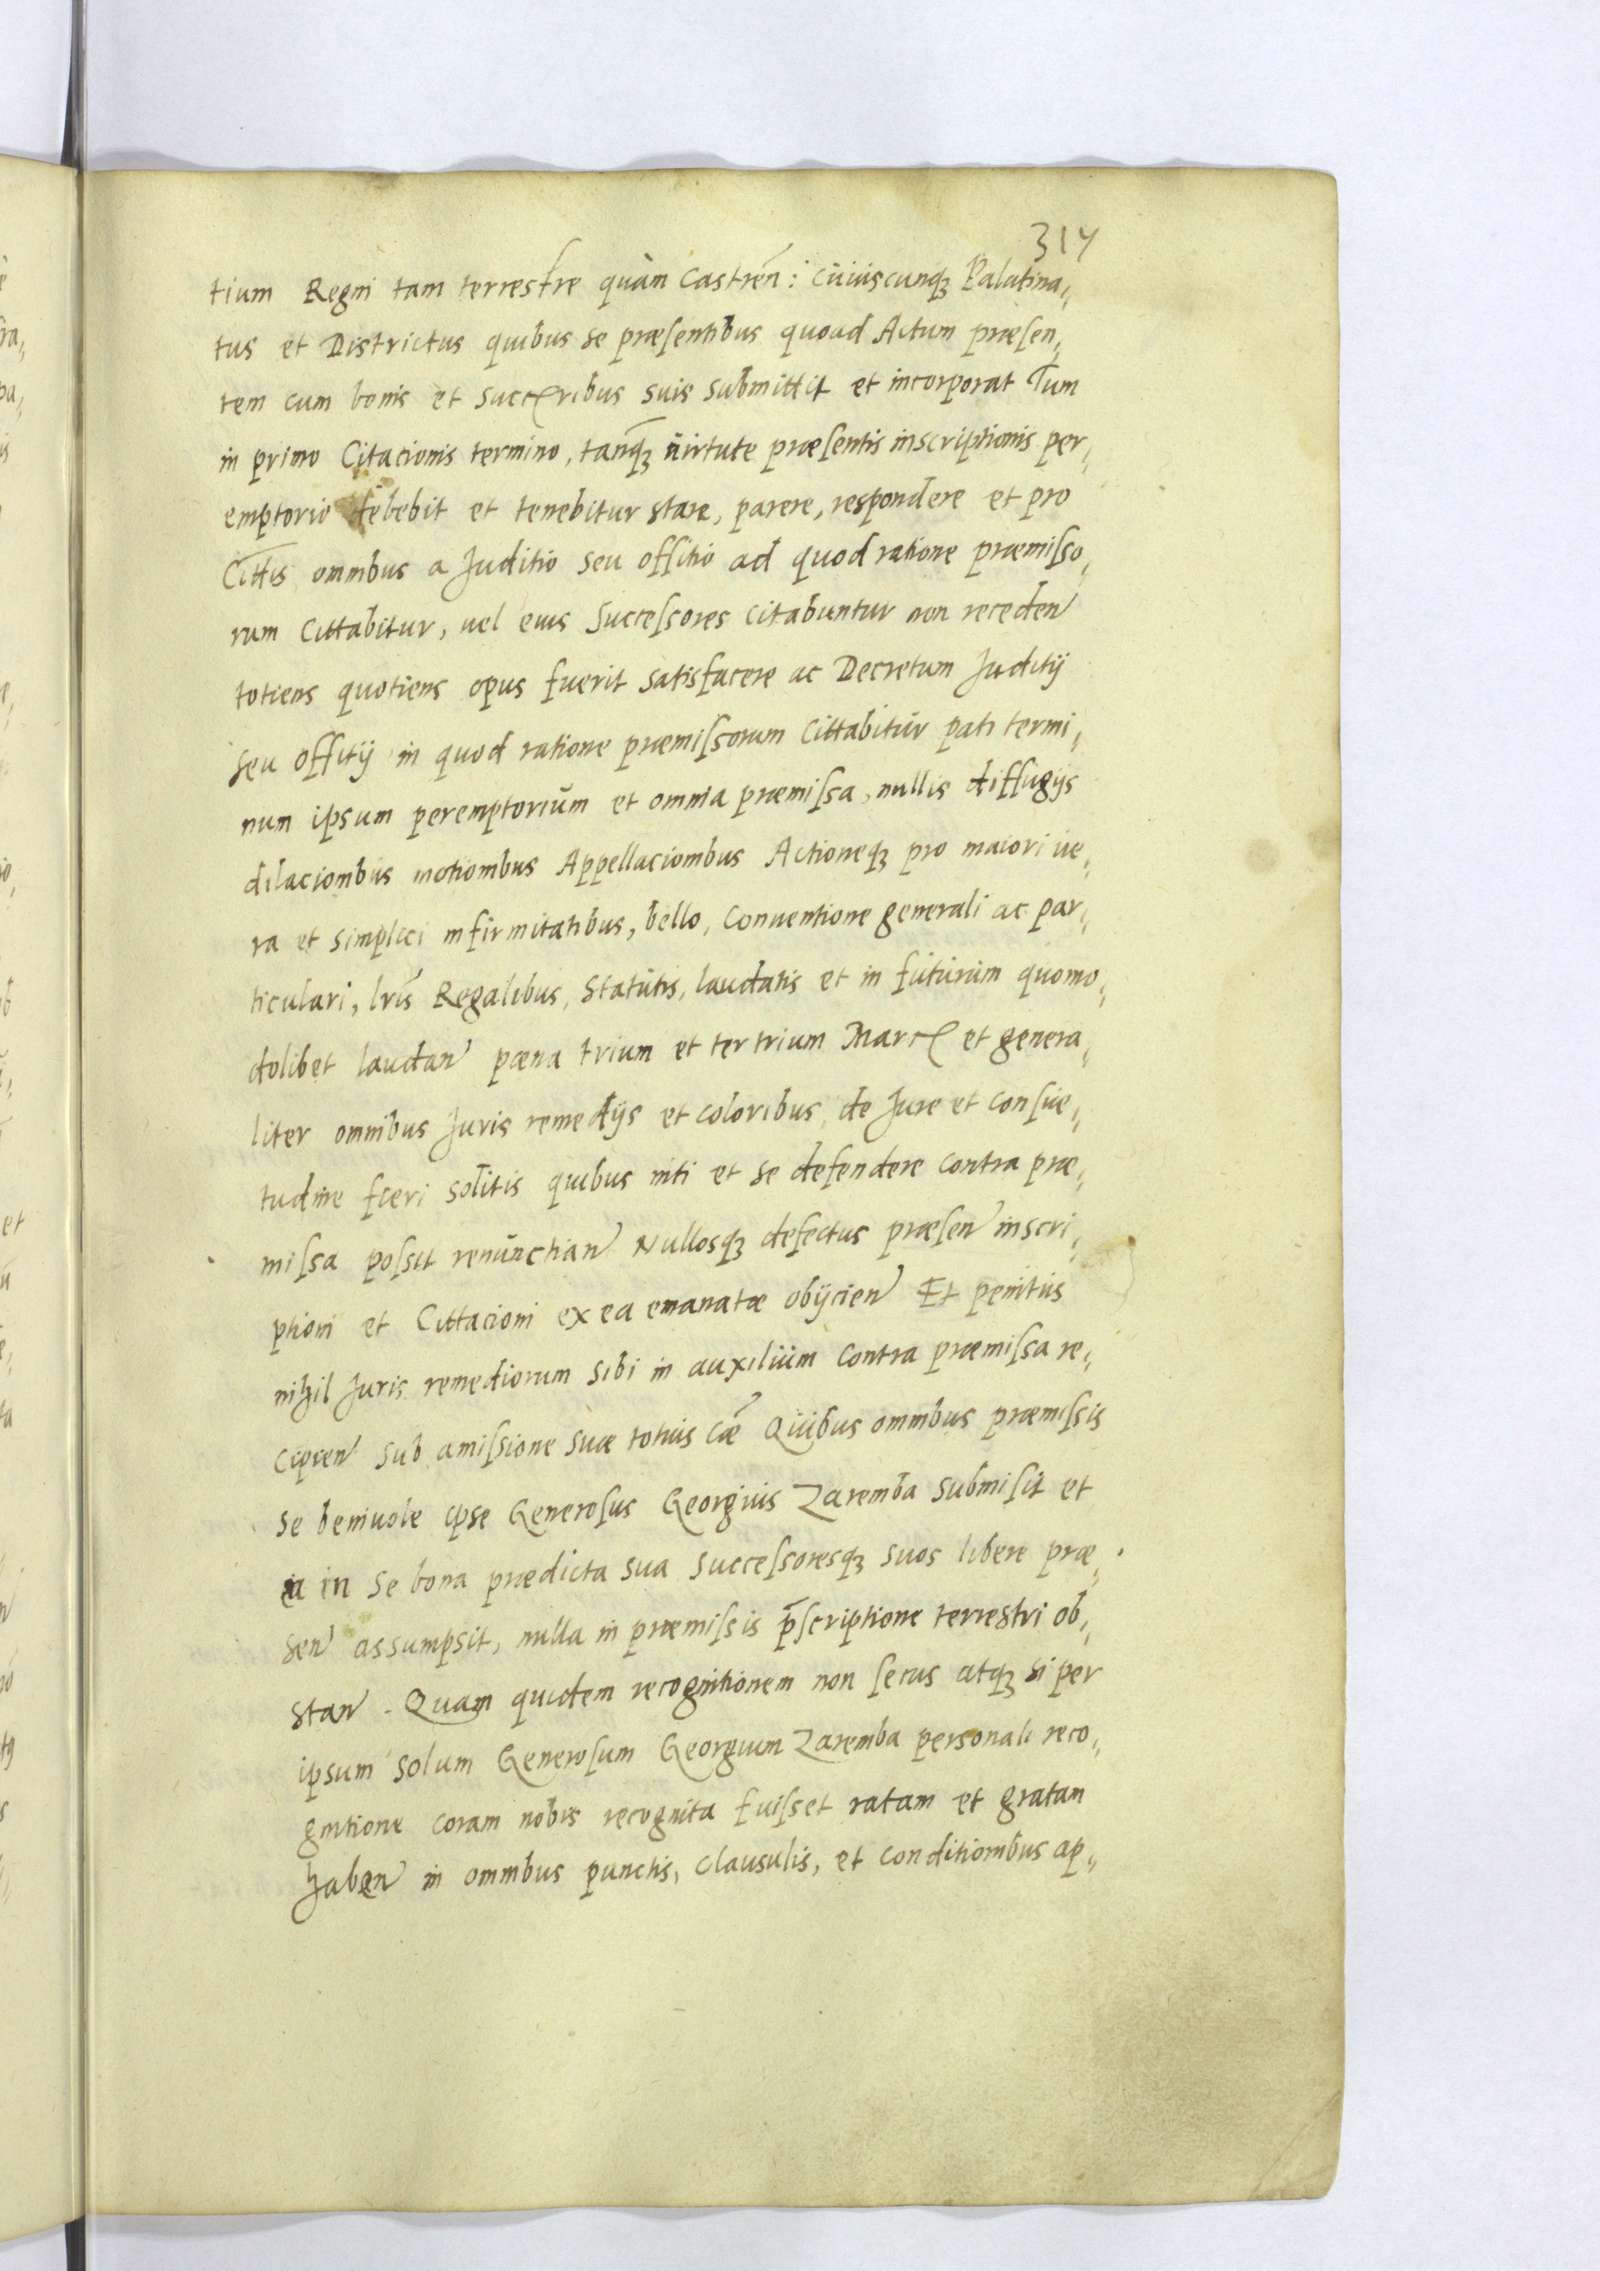 317
tium Regni tam terrestre quàm Castreñ: cuiuscunqꝫ Palatina„
tus et Districtus quibus se præsentibus quoad Actum præsen„
tem cum bonis et succribus suis submittit et incorporat Tum
in primo Citacionis termino, tanqꝫ uirtute præsentis inscriptionis per„
emptorio debebit et tenebitur stare, parere, respondere et pro
Cittis omnibus a Juditio seu offitio ad quod ratione præmisso„
rum Cittabitur, uel eius Successores citabuntur non receden
totiens quotiens opus fuerit satisfacere ac Decretum Juditij
seu offitij in quod ratione præmissorum Cittabitur pati termi„
num ipsum peremptorium et omnia præmissa, nullis diffugijs
dilacionibus motionibus Appellacionibus Actioneqꝫ pro maiori ue„
ra et simplici infirmitatibus, bello, Conuentione generali ac par„
ticulari, lris Regalibus, statutis, laudatis et in futurum quomo„
dolibet laudan pæna trium et ter trium Marc et genera„
liter omnibus Juris remedijs et coloribus, de Jure et consue„
tudine fieri solitis quibus niti et se defendere contra præ„
missa possit renunctian Nullosqꝫ defectus præsen inscri„
ptioni et Cittacioni ex ea emanatæ obijcien Et penitus
nihil Juris remediorum sibi in auxilium contra præmissa re„
cipien sub amissione suæ totius cæ Quibus omnibus præmissis
se beniuole ipse Generosus Georgius Zaremba submisit et
in se bona prædicta sua Successoresqꝫ suos libere præ„
sen assumpsit, nulla in præmissis p̄scriptione terrestri ob„
stan. Quam quidem recognitionem non secus atqꝫ si per
ipsum solum Generosum Georgium Zaremba personali reco„
gnitione coram nobis recognita fuisset ratam et gratam
haben in omnibus punctis, clausulis, et conditionibus ap„